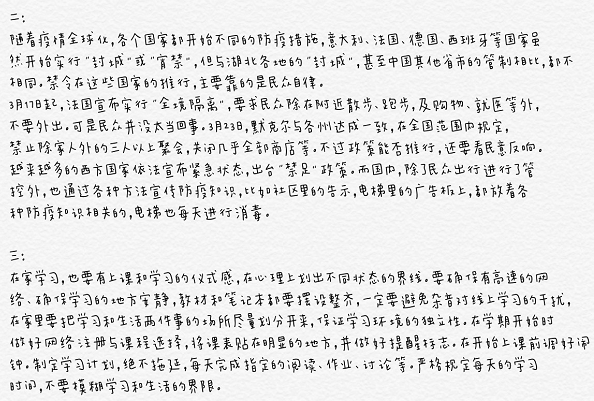 二:
随着疫情全球化,各个国家都开始不同的防疫措施,意大利、法国、德国、西班牙等国家虽
然开始实行"封城"或"宵禁",但与湖北各地的"封城",甚至中国其他省市的管制相比,都不
相同.禁令在这些国家的推行,主要靠的是民众自律.
3月17日起,法国宣布实行"全境隔离",要求民众除在附近散步、跑步,及购物、就医等外,
不要外出.可是民众并没太当回事.3月23日,默克尔与各州达成一致,在全国范围内规定,
禁止除家人外的三人以上聚会,关闭几乎全部商店等.不过政策能否推行,还要看民意反响.
越来越多的西方国家依法宣布紧急状态,出台"禁足"政策.而国内,除了民众出行进行了管
控外,也通过各种方法宣传防疫知识,比如社区里的告示,电梯里的广告板上,都放着各
种防疫知识相关的,电梯也每天进行消毒。
三:
在家学习,也要有上课和学习的仪式感,在心理上划出不同状态的界线.要确保有高速的网
络、确保学习的地方宁静,教材和笔记本都要摆设整齐,一定要避免杂音对线上学习的干扰,
在家里要把学习和生活两件事的场所尽量划分开来,保证学习环境的独立性.在学期开始时
做好网络注册与课程选择,将课表贴在明显的地方,并做好提醒标志.在开始上课前调好闹
钟.制定学习计划,绝不拖延,每天完成指定的阅读、作业、讨论等.严格规定每天的学习
时间,不要模糊学习和生活的界限.